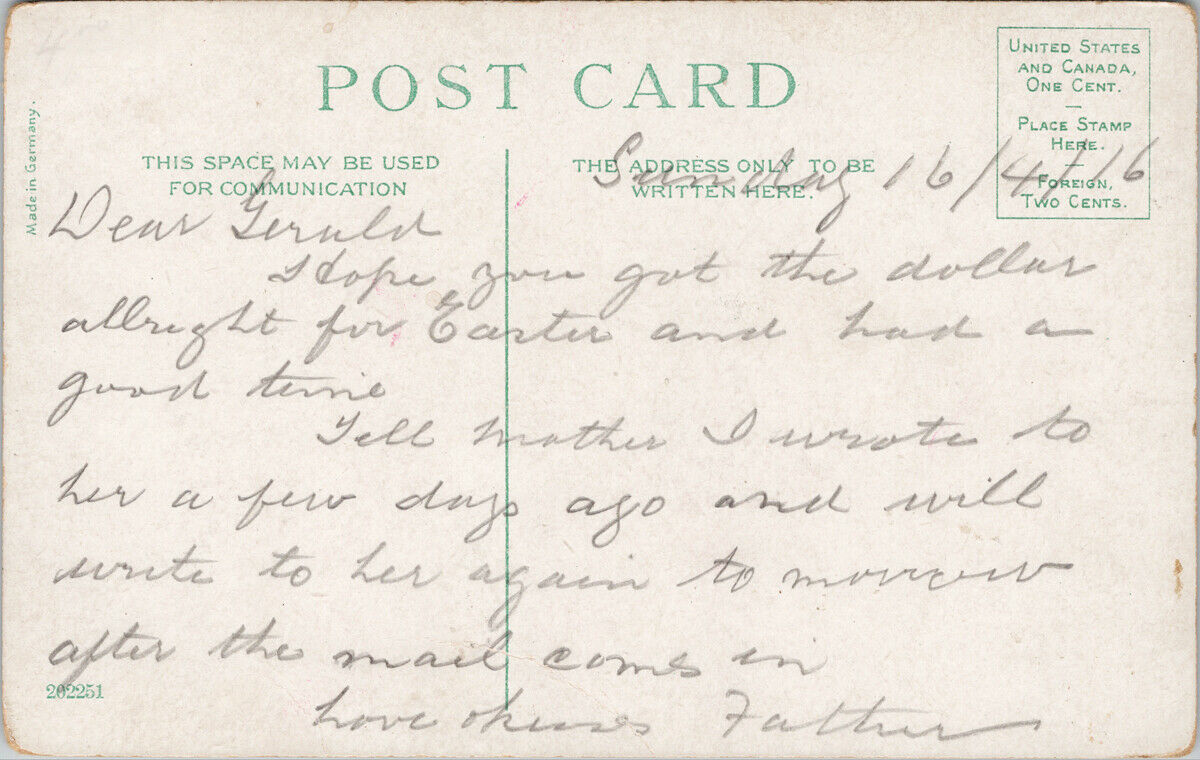 POST CARD
Made in Germany.
UNITED STATES
AND CANADA,
ONE CENT.
—
PLACE STAMP
HERE.
—
FOREIGN,
TWO CENTS.
THIS SPACE MAY BE USED
FOR COMMUNICATION
THE ADDRESS ONLY TO BE
WRITTEN HERE.
Sunday 16/4/16
Dear Gerald
I Hope you got the dollar
allright for Easter and had a
good time
Tell mother I wrote to
her a few days ago and will
write to her again to morrow
after the mail comes in
202251
Love Father